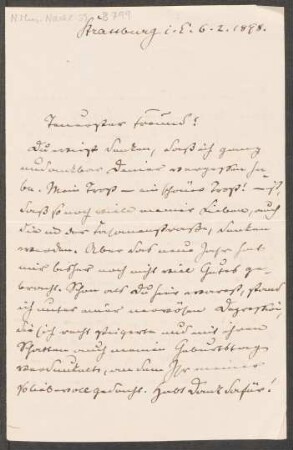 Strassburg i. E. 6. 2. 1898.
Teuerster Freund!
Du wirst denken, daß ich ganz
undankbar Deiner vergessen ha-
be. Mein Trost – ein schöner Trost! – ist,
daß so noch viele meiner Lieben, auch
die in der denken
werden. Aber das neue Jahr hat
mir bisher noch nicht viel Gutes ge-
bracht. Schon als Du hier warst, stand
ich unter einer nervösen Depression,
die sich recht steigerte und mit ihrem
Schatten auch meinen Geburtstag
verdunkelte, an dem Ihr meiner
so liebevoll gedacht. Habt Dank dafür!